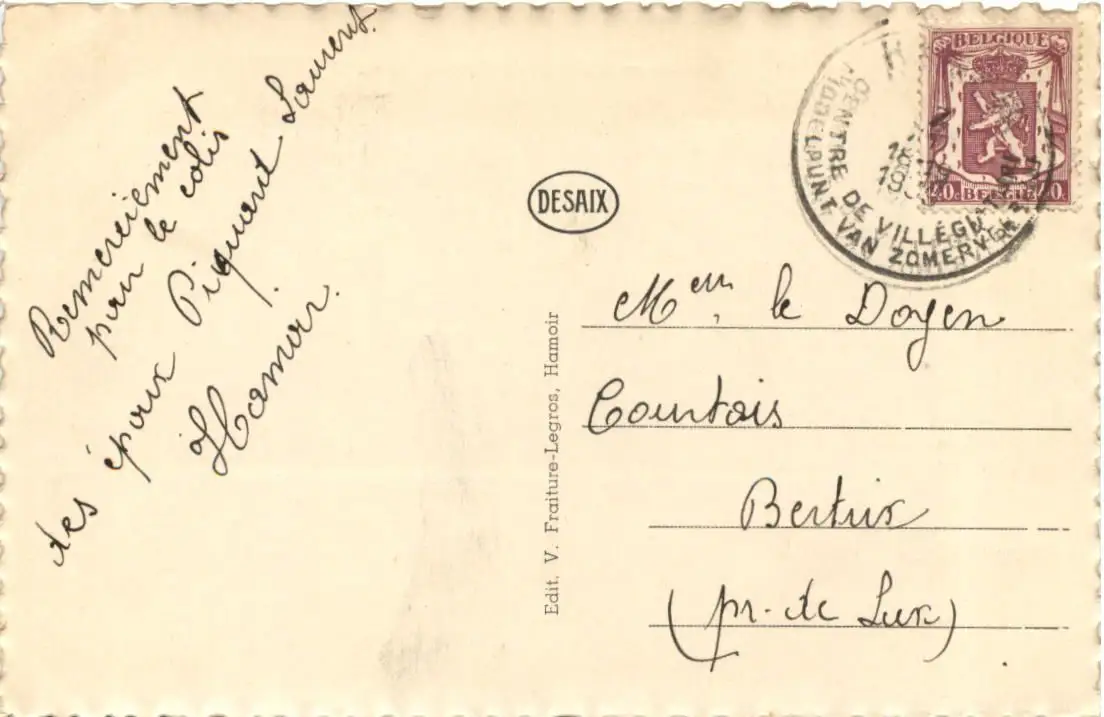 Remerciement
pour le colis
des époux Piquard Laurent.
Hamoir.
DESAIX
Edit. V. Fraiture-Legros, Hamoir
BELGIQUE
40c BELGIË 40c
CENTRE DE VILLÉGIATURE
VAN ZOMERV
Mem le Doyen
Courtois
Bertrix
(pr. de Lux)